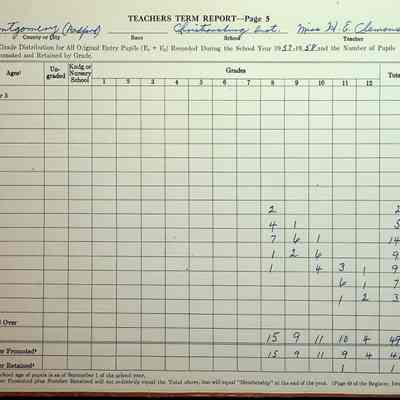 TEACHERS TERM REPORT—Page 5
Montgomery (Radford) Christiansburg Inst. Miss H E Clemons
County or City Race School Teacher
Grade Distribution for All Original Entry Pupils (E₁ + E₂) Recorded During the School Year 1957-1958 and the Number of Pupils
Promoted and Retained by Grade.
Ages¹ Un-graded Kndg or Nursery School Grades Total
1 2 3 4 5 6 7 8 9 10 11 12
2 2
4 1 5
7 6 1 14
1 2 6 9
1 4 3 1 9
6 1 7
1 2 3
Over
15 9 11 10 4 49
Promoted² 15 9 11 9 4
Retained² 1 1
school age of pupils is as of September 1 of the school year.
Promoted plus Number Retained will not ordinarily equal the Total above, but will equal "Membership" at the end of the year.